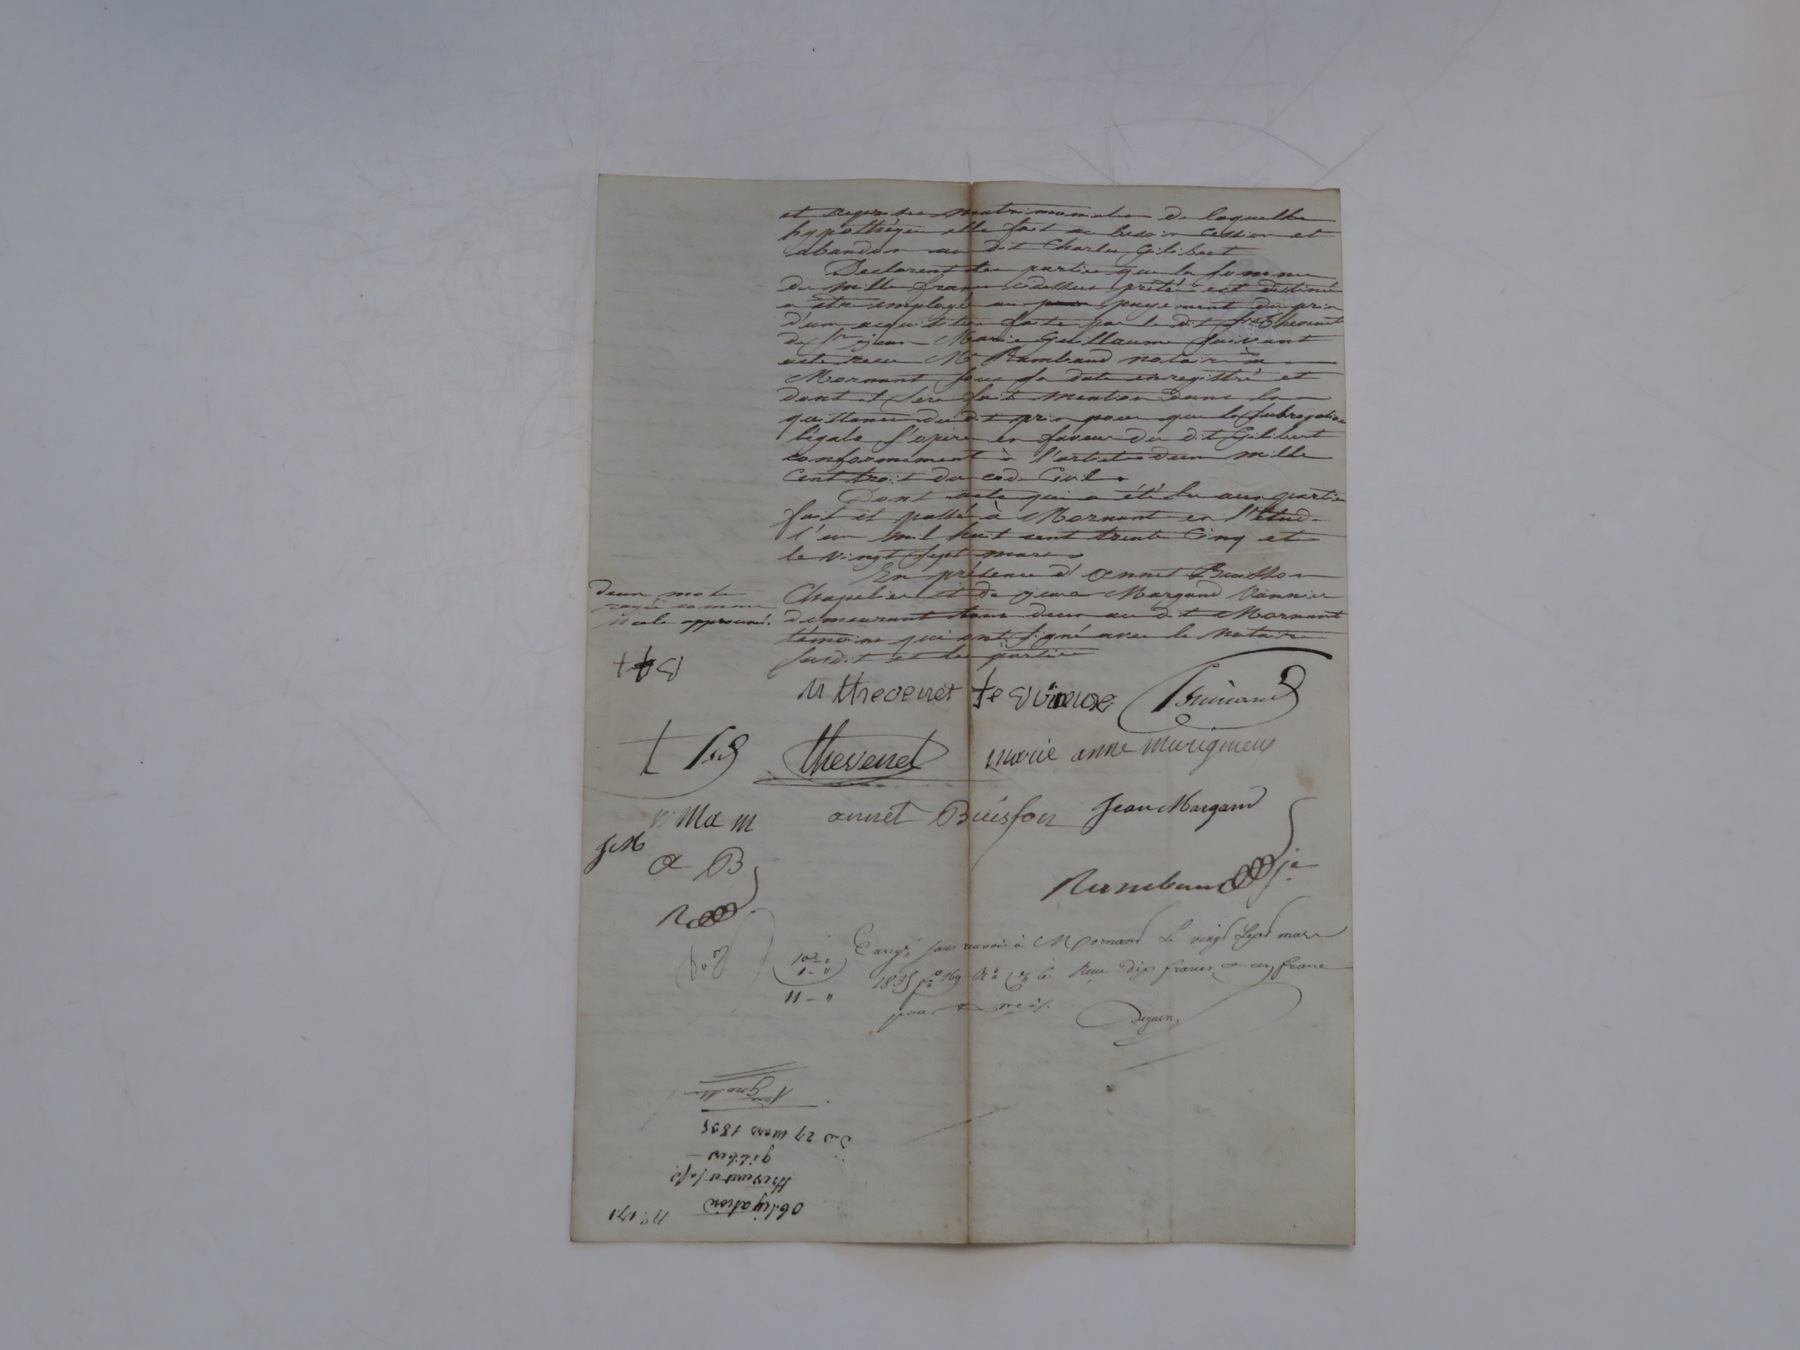 et reprises matrimoniales de laquelle
hypothèque elle fait au besoin cession et
abandon au dit Charles Gilibert
Declarent les parties que la somme
de mille francs cidessus prêtée est destiné
a être employée au payement du prix
d'un acquisition faite par le dit Sr Thevenet
de Sr jean Marie Guillaume suivant
acte reçu Me Rambaud notaire à
Mornant sous sa date enregistré et
dont il sera fait mention dans la
quittance du dit prix pour que la subrogation
légale s'opère en faveur du dit Gilibert
conformement à l'article deux mille
Cent trois du code Civil.
Dont acte qui a été lu aux parties
fait et passé à Mornant en l'étude
l'an mil huit cent trente Cinq et
le vingt sept mars
En présence d'annet Buisson
Chapelier et de jean Margand Vannier
demeurant tous deux au dit Mornant
témoins qui ont signé avec le notaire
susdit et les parties
deux mots
rayés comme
nuls approuvés.
M thevenet fe
thevenet marie anne
M a m annet Buisson Jean Margand
J M
a B
Rambaud
Enregé sans renvoi à Mornant le vingt sept mars
1835 fo 169 Ro Reçu dix francs un franc
pour
10 - "
1 - "
11 - "
No 171
Obligation
thevenet
gilibert
du 27 mars 1835